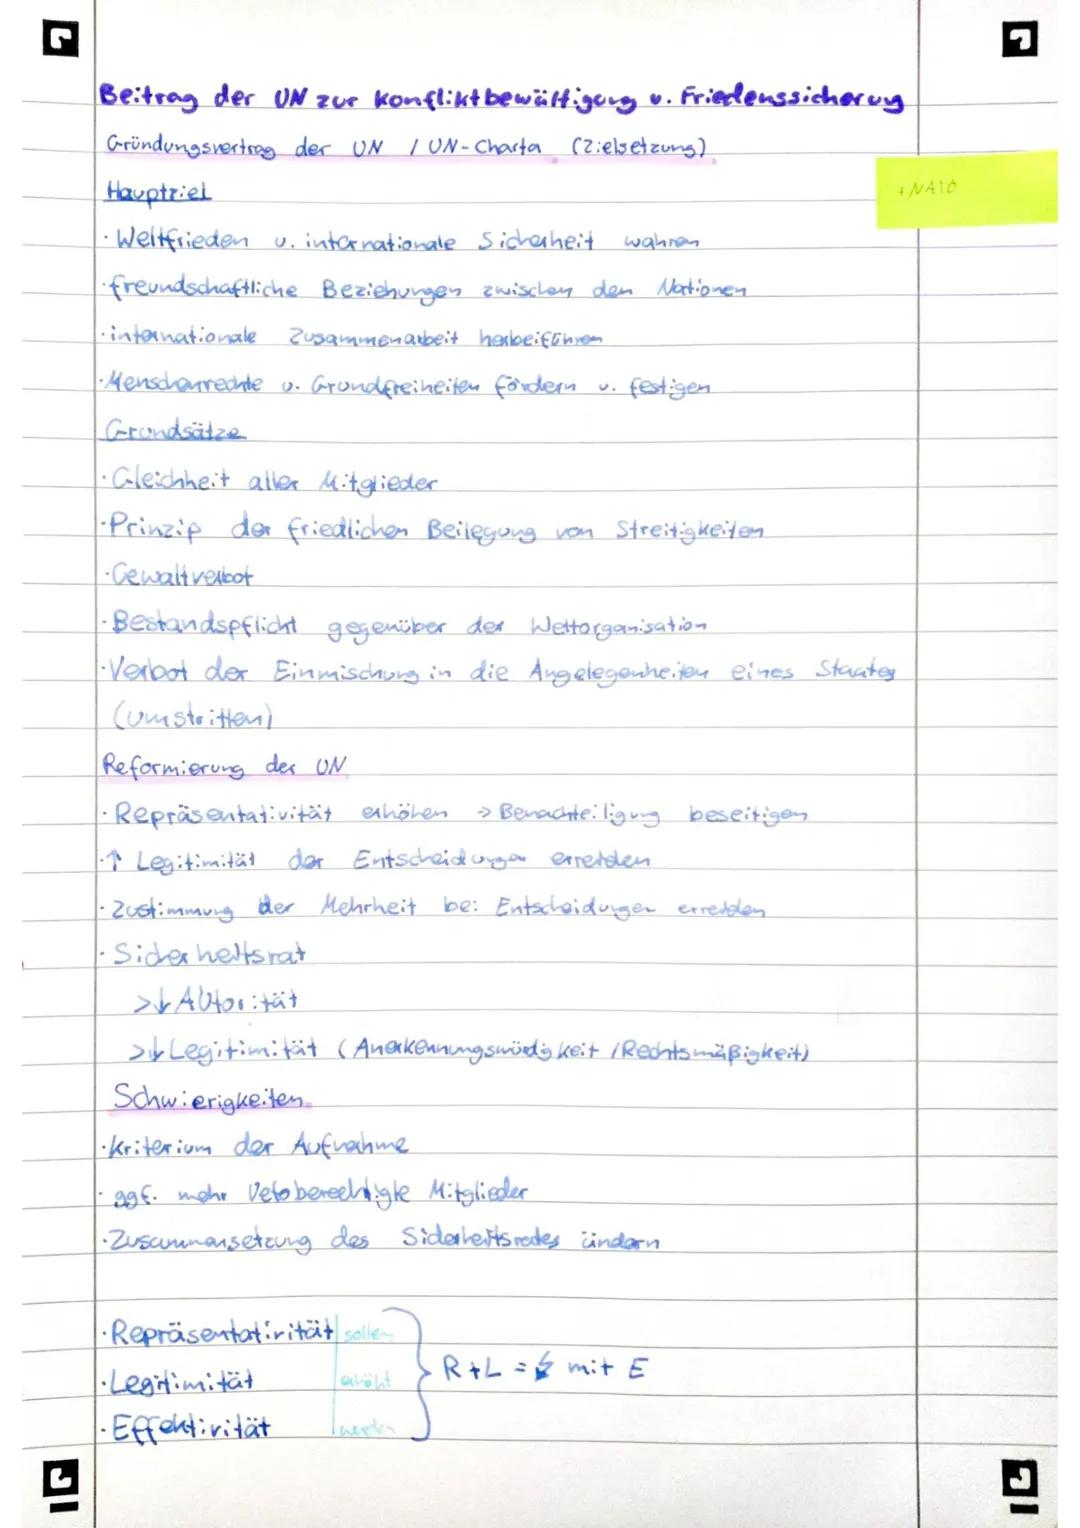 Beitrag der UN zur Konfliktbewältigung u. Friedenssicherung
Gründungsvertrag der UN / UN-Charta (Zielsetzung)
Hauptziel
+ NATO
· Weltfrieden u. internationale Sicherheit wahren
· freundschaftliche Beziehungen zwischen den Nationen
· internationale Zusammenarbeit herbeiführen
· Menschenrechte u. Grundfreiheiten fördern u. festigen
Grundsätze
· Gleichheit aller Mitglieder
· Prinzip der friedlichen Beilegung von Streitigkeiten
· Gewaltverbot
· Bestandspflicht gegenüber der Weltorganisation
· Verbot der Einmischung in die Angelegenheiten eines Staates
(umstritten)
Reformierung der UN
· Repräsentativität erhöhen -> Benachteiligung beseitigen
· ↑ Legitimität der Entscheidungen erreichen
· Zustimmung der Mehrheit bei Entscheidungen erreichen
· Sicherheitsrat
>↓ Autorität
>↓ Legitimität (Anerkennungswürdigkeit / Rechtsmäßigkeit)
Schwierigkeiten
· Kriterium der Aufnahme
· ggf. mehr Vetoberechtigte Mitglieder
· Zusammensetzung des Sicherheitsrates ändern
· Repräsentativität sollen
· Legitimität erhöht R+L = ↯ mit E
· Effektivität werden